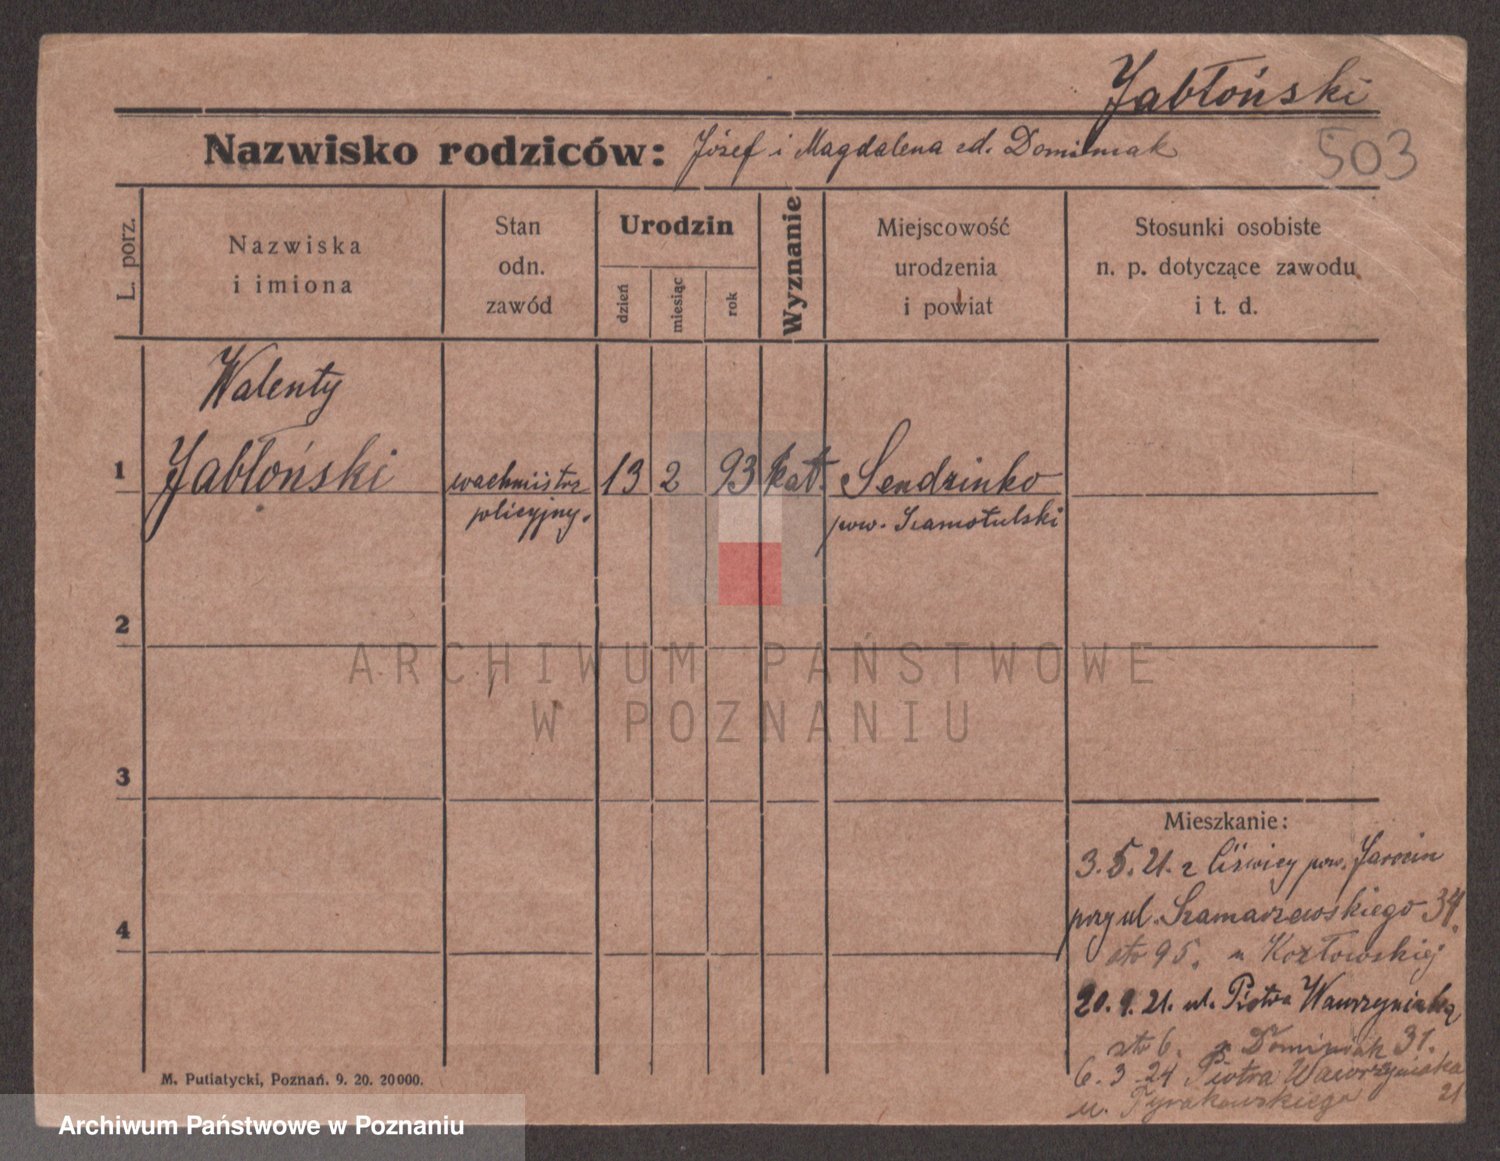 Jabłoński
Nazwisko rodziców: Józef i Magdalena cd. Dominiak
503
L. porz.
Nazwiska
i imiona
Stan
odn.
zawód
Urodzin
dzień
miesiąc
rok
Wyznanie
Miejscowość
urodzenia
i powiat
Stosunki osobiste
n. p. dotyczące zawodu
i t. d.
Walenty
1 Jabłoński wachmistrz 13 2 93 kat. Sendzinko
policyjny. pow. Szamotulski
2
ARCHIWUM PAŃSTWOWE
W POZNANIU
3
Mieszkanie:
3.5.21. z pow. Jarocin
przy ul. Szamarzewskiego 34.
str 95. u Kozłowskiej
20.9.21. ul. Piotra Wawrzyniaka
str 6. Dominiak 31.
4
6.3.24 Piotra Wawrzyniaka
21
u.
M. Putiatycki, Poznań. 9. 20. 20000.
Archiwum Państwowe w Poznaniu